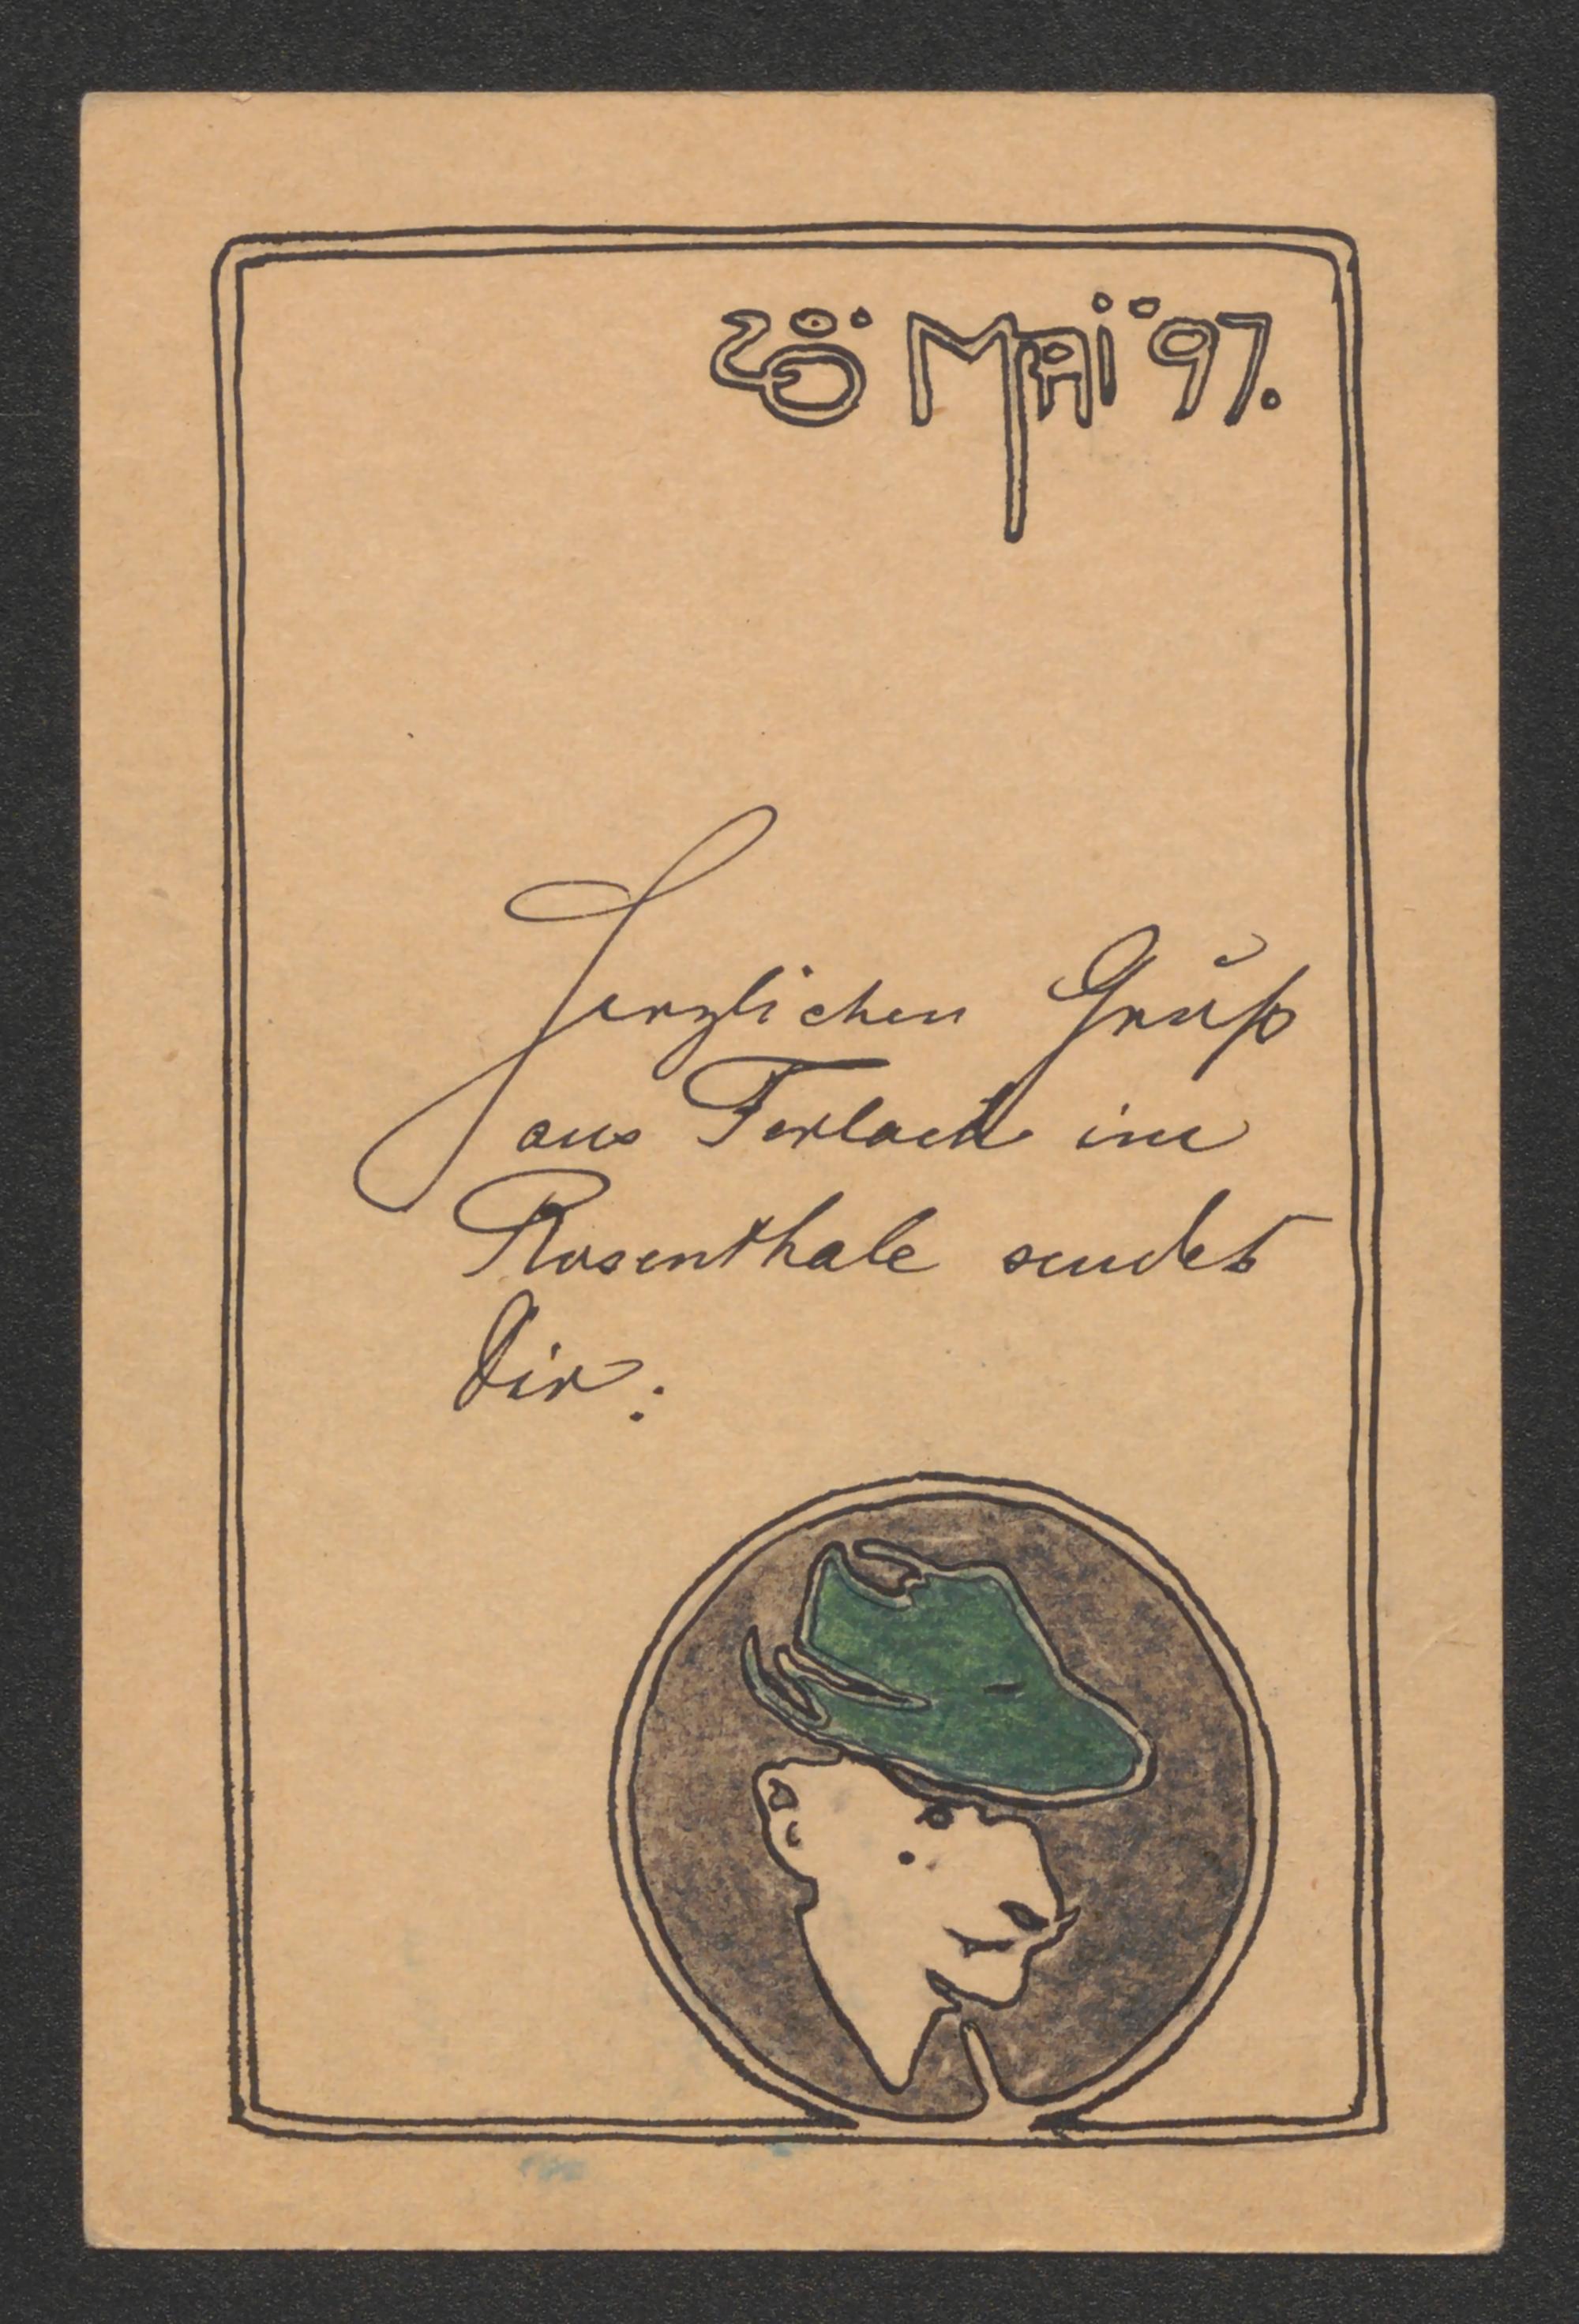 28. Mai '97.
Herzlichen Gruß
aus Ferlach im
Rosenthale sendet
Dir: